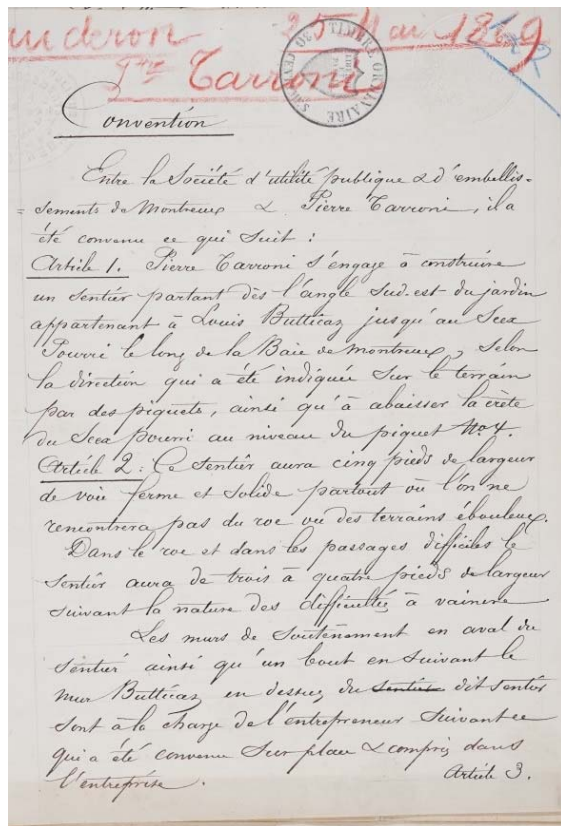 25 Mai 1869
Tarroni
Convention
Entre la Société d'utilité publique & d'embellis-
sements de Montreux & Pierre Tarroni, il a
été convenu ce qui suit :
Article 1. Pierre Tarroni s'engage à construire
un sentier partant dès l'angle Sud-est du jardin
appartenant à Louis Butticaz jusqu'au Scex
Pourri le long de la Baie de Montreux, selon
la direction qui a été indiquée sur le terrain
par des piquets, ainsi qu'à abaisser la crète
du Scex pourri au niveau du piquet No. 4.
Article 2 : Ce sentier aura cinq pieds de largeur
de voie ferme et solide partout où l'on ne
rencontrera pas du roc ou des terrains ébouleux.
Dans le roc et dans les passages difficiles le
sentier aura de trois à quatre pieds de largeur
suivant la nature des difficultés à vaincre
Les murs de soutènement en aval du
sentier ainsi qu'un bout en suivant le
mur Butticaz en dessus du sentier dit sentier
sont à la charge de l'entrepreneur suivant ce
qui a été convenu sur plan & compris dans
l'entreprise.
Article 3.